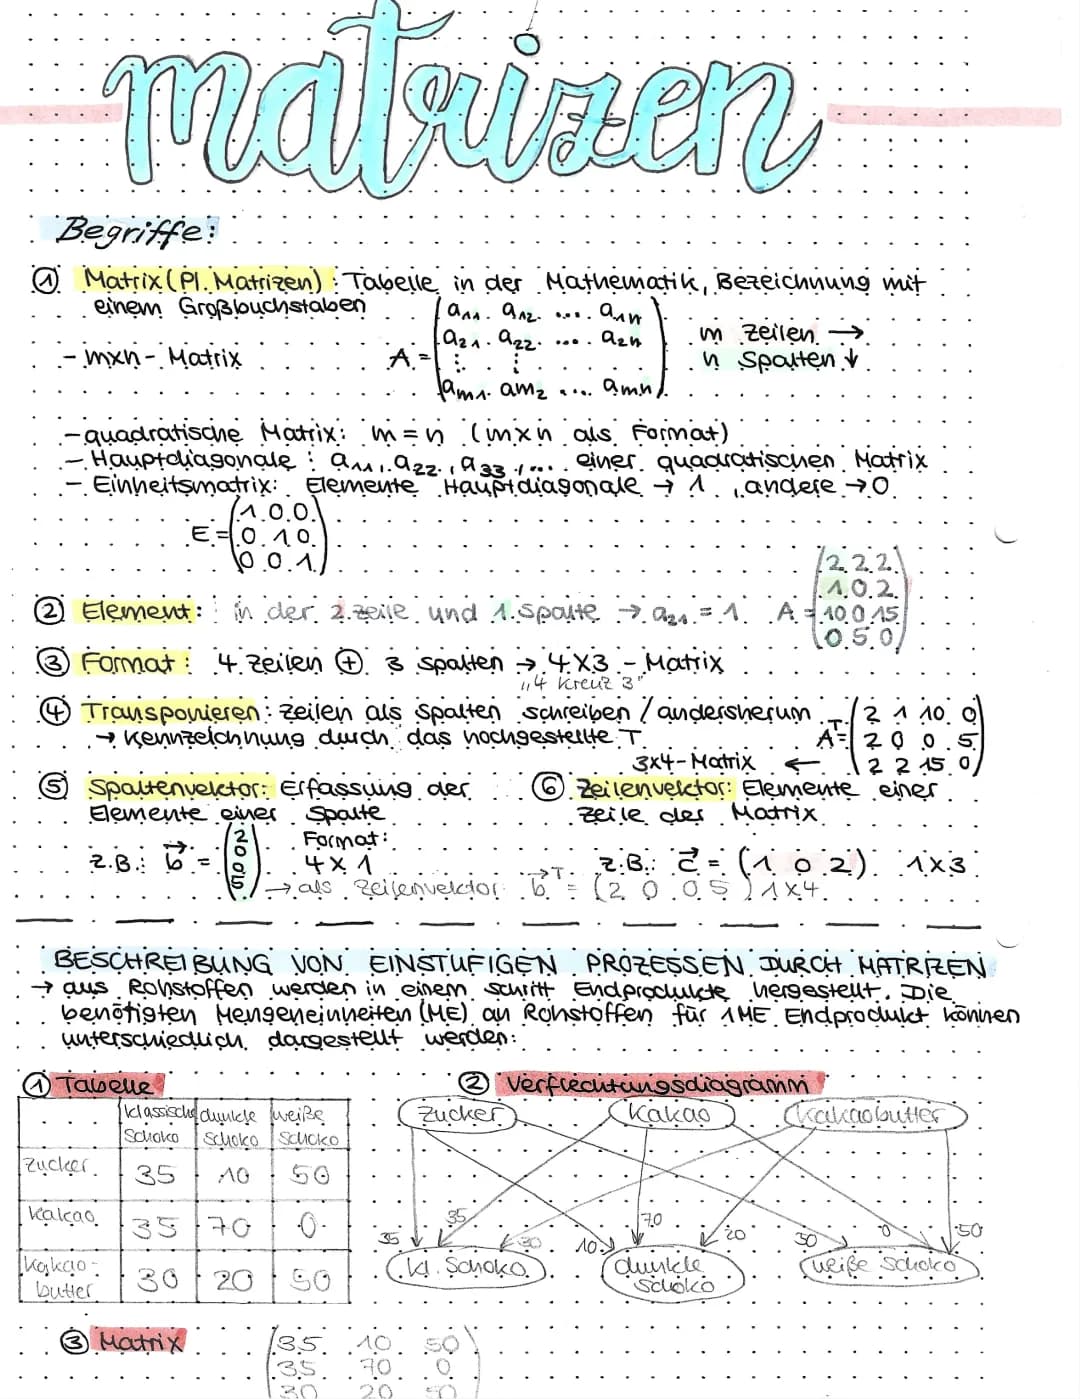 matrizen
Begriffe:
① Matrix (Pl. Matrizen): Tabelle in der Mathematik, Bezeichnung mit
einem Großbuchstaben
- mxn - Matrix
A = (a₁₁ a₁₂ .... a₁n
a₂₁ a₂₂ .... a₂n
⋮ ⋮
am₁ am₂ .... amn)
m Zeilen →
n Spalten ↓
- quadratische Matrix: m = n (mxn als Format)
- Hauptdiagonale: a₁₁, a₂₂, a₃₃, .... einer quadratischen Matrix
- Einheitsmatrix: Elemente Hauptdiagonale → 1, andere → 0
E = (1 0 0
0 1 0
0 0 1)
② Element: in der 2. Zeile und 1. Spalte → a₂₁ = 1
A = (2 2 2
1 0 2
10 0 15
0 5 0)
③ Format: 4 Zeilen ⊕ 3 Spalten → 4x3 - Matrix
„4 Kreuz 3"
④ Transponieren: Zeilen als Spalten schreiben / andersherum
→ Kennzeichnung durch das hochgestellte T
Aᵀ = (2 1 10 0
2 0 0 5
2 2 15 0)
3x4-Matrix ←
⑤ Spaltenvektor: Erfassung der
Elemente einer Spalte
z.B.: b⃗ = (2
0
0
5)
Format:
4 x 1
→ als Zeilenvektor: b⃗ᵀ = (2 0 0 5) 1x4
⑥ Zeilenvektor: Elemente einer
Zeile der Matrix
z.B.: c⃗ = (1 0 2) 1x3
BESCHREIBUNG VON EINSTUFIGEN PROZESSEN DURCH MATRIZEN
→ aus Rohstoffen werden in einem Schritt Endprodukte hergestellt. Die
benötigten Mengeneinheiten (ME) an Rohstoffen für 1ME Endprodukt können
unterschiedlich dargestellt werden:
① Tabelle
klassische Schoko dunkle Schoko weiße Schoko
Zucker 35 10 50
Kakao 35 70 0
Kakao-
butter 30 20 50
② Verflechtungsdiagramm
Zucker Kakao Kakaobutter
35 35 30 10 70 20 50 0 50
kl. Schoko
dunkle
Schoko
weiße Schoko
③ Matrix
(35 10 50
35 70 0
30 20 50)